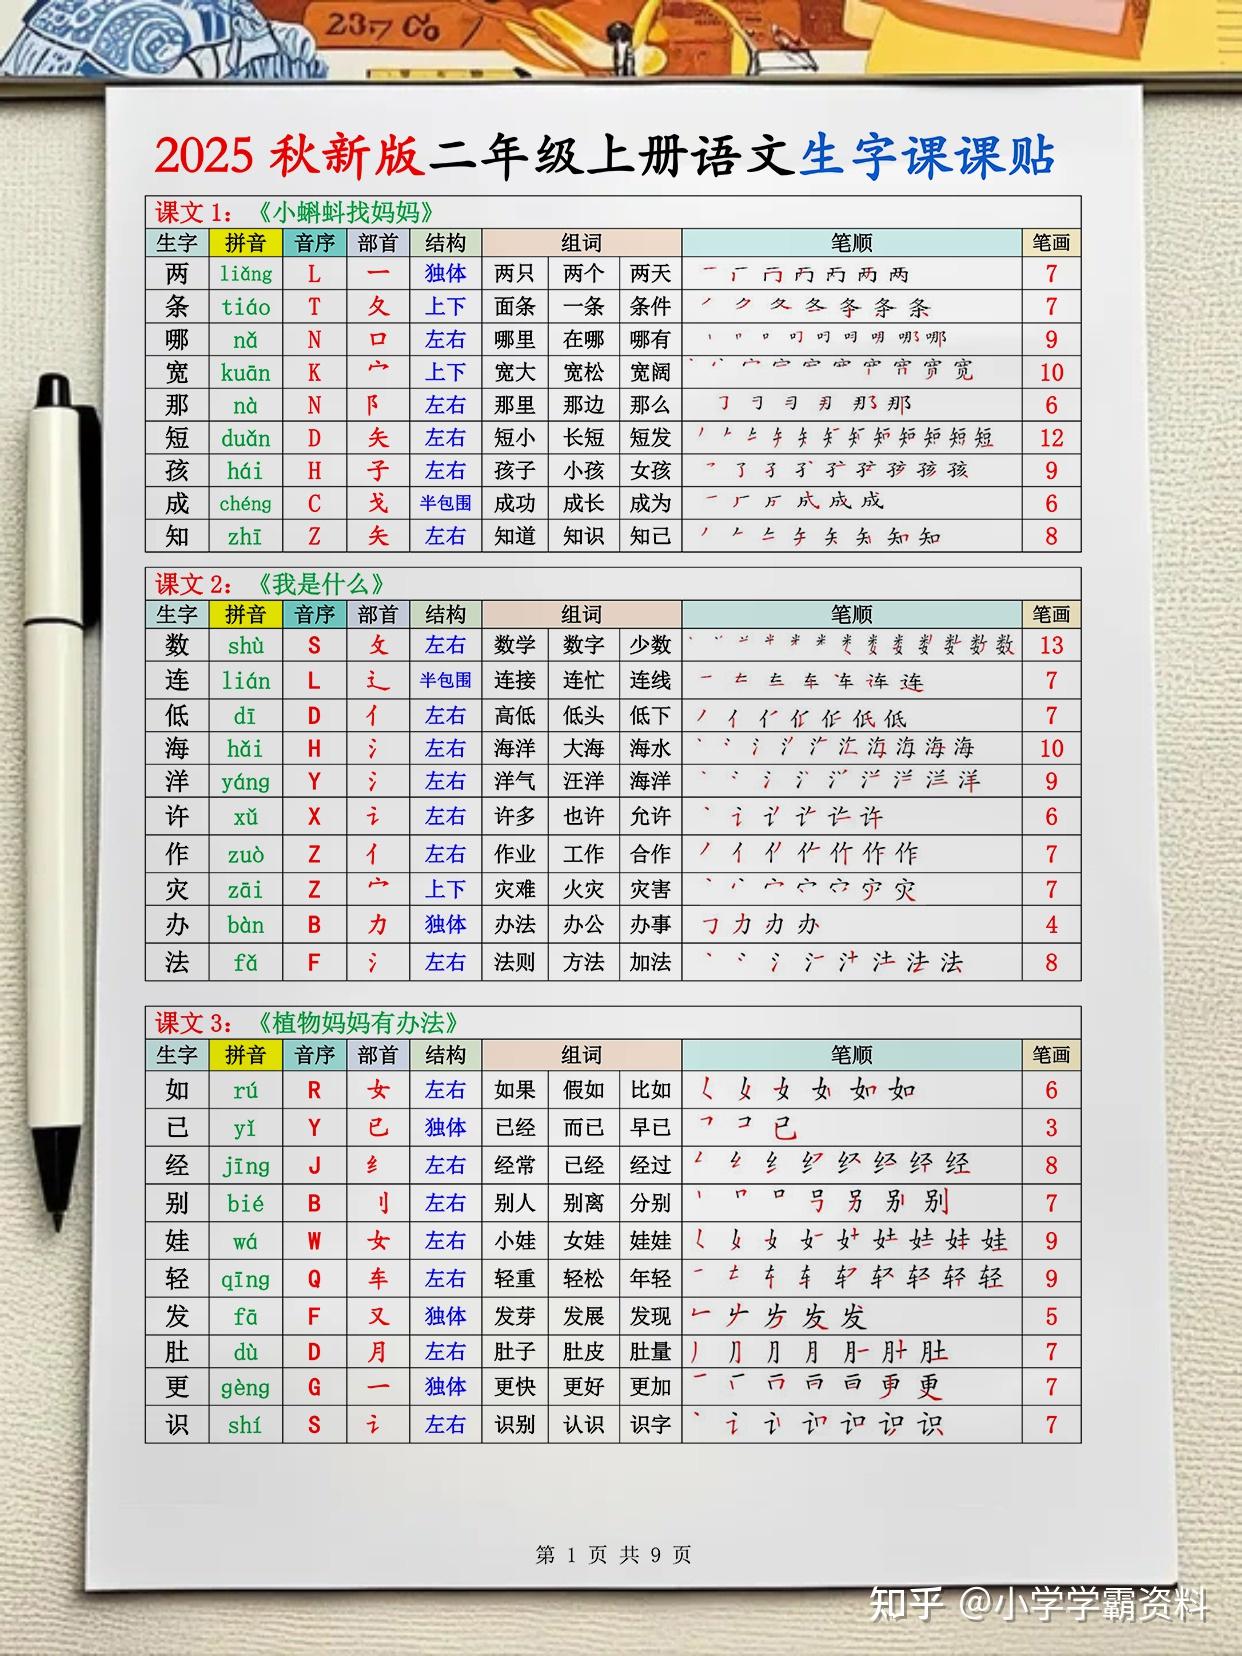 2025 秋新版二年级上册语文生字课课贴
课文 1：《小蝌蚪找妈妈》
生字 拼音 音序 部首 结构 组词 笔顺 笔画
两 liǎng L 一 独体 两只 两个 两天 7
条 tiáo T 夂 上下 面条 一条 条件 7
哪 nǎ N 口 左右 哪里 在哪 哪有 9
宽 kuān K 宀 上下 宽大 宽松 宽阔 10
那 nà N 阝 左右 那里 那边 那么 6
短 duǎn D 矢 左右 短小 长短 短发 12
孩 hái H 子 左右 孩子 小孩 女孩 9
成 chéng C 戈 半包围 成功 成长 成为 6
知 zhī Z 矢 左右 知道 知识 知己 8
课文 2：《我是什么》
生字 拼音 音序 部首 结构 组词 笔顺 笔画
数 shù S 攵 左右 数学 数字 少数 13
连 lián L 辶 半包围 连接 连忙 连线 7
低 dī D 亻 左右 高低 低头 低下 7
海 hǎi H 氵 左右 海洋 大海 海水 10
洋 yáng Y 氵 左右 洋气 汪洋 海洋 9
许 xǔ X 讠 左右 许多 也许 允许 6
作 zuò Z 亻 左右 作业 工作 合作 7
灾 zāi Z 宀 上下 灾难 火灾 灾害 7
办 bàn B 力 独体 办法 办公 办事 4
法 fǎ F 氵 左右 法则 方法 加法 8
课文 3：《植物妈妈有办法》
生字 拼音 音序 部首 结构 组词 笔顺 笔画
如 rú R 女 左右 如果 假如 比如 6
已 yǐ Y 已 独体 已经 而已 早已 3
经 jīng J 纟 左右 经常 已经 经过 8
别 bié B 刂 左右 别人 别离 分别 7
娃 wá W 女 左右 小娃 女娃 娃娃 9
轻 qīng Q 车 左右 轻重 轻松 年轻 9
发 fā F 又 独体 发芽 发展 发现 5
肚 dù D 月 左右 肚子 肚皮 肚量 7
更 gèng G 一 独体 更快 更好 更加 7
识 shí S 讠 左右 识别 认识 识字 7
第 1 页 共 9 页
知乎 @小学学霸资料